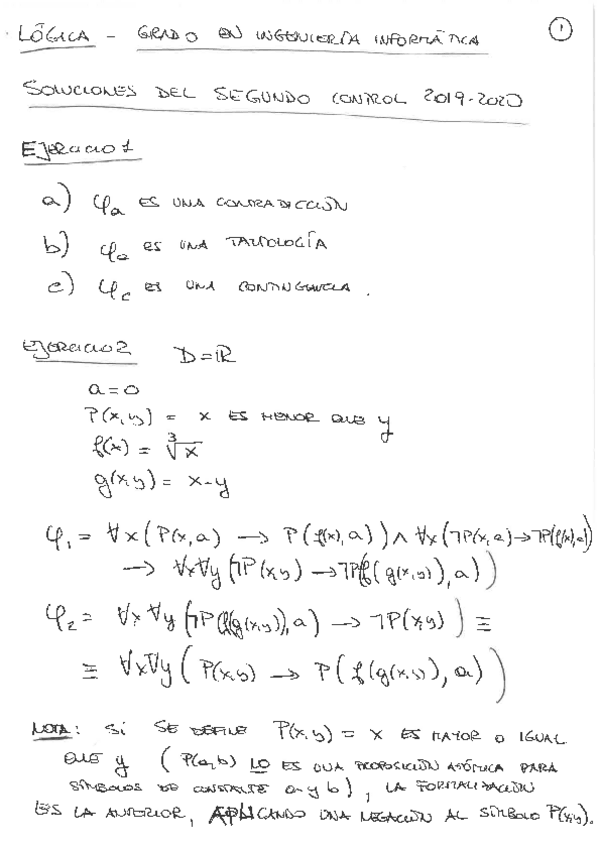 LÓGICA - GRADO EN INGENIERÍA INFORMÁTICA
1
SOLUCIONES DEL SEGUNDO CONTROL 2019-2020
EJERCICIO 1
a) φa ES UNA CONTRADICCIÓN
b) φa ES UNA TAUTOLOGÍA
c) φc ES UNA CONTINGENCIA.
EJERCICIO 2 D = ℝ
a = 0
P(x,y) = x ES MENOR QUE y
f(x) = ∛x
g(x,y) = x-y
φ₁ = ∀x(P(x,a) → P(f(x),a)) ∧ ∀x(¬P(x,a) → ¬P(f(x),a))
→ ∀x∀y(¬P(x,y) → ¬P(f(g(x,y)),a))
φ₂ = ∀x∀y(¬P(f(g(x,y)),a) → ¬P(x,y)) ≡
≡ ∀x∀y(P(x,y) → P(f(g(x,y)),a))
NOTA: SI SE DEFINE P(x,y) = x ES MAYOR O IGUAL
QUE y (P(a,b) LO ES UNA PROPOSICIÓN ATÓMICA PARA
SÍMBOLOS DE CONSTANTE a y b), LA FORMALIZACIÓN
ES LA ANTERIOR, APLICANDO UNA NEGACIÓN AL SÍMBOLO P(x,y).